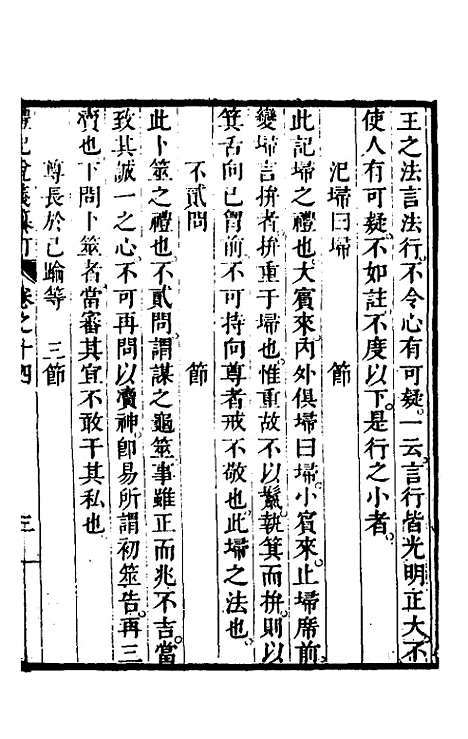 王之法言法行。不令心有可疑。一云言行皆光明正大。不
使人有可疑。不如註不度以下。是行之小者。
汜埽曰埽　節
此記埽之禮也。大賓來。內外俱埽曰埽。小賓來。止埽席前
變埽言拚者。拚重于埽也。惟重故不以鬣。執箕而拚。則以
箕舌向已胷前。不可持向尊者。戒不敬也。此埽之法也。
不貳問　節
此卜筮之禮也。不貳問。謂謀之龜筮。事雖正而兆不吉。當
致其誠一之心。不可再問以瀆神。卽易所謂初筮告。再三
瀆也。下問卜筮者。當審其宜。不敢干其私也
尊長於己踰等　三節
禮記會義纂訂　卷之十四　三